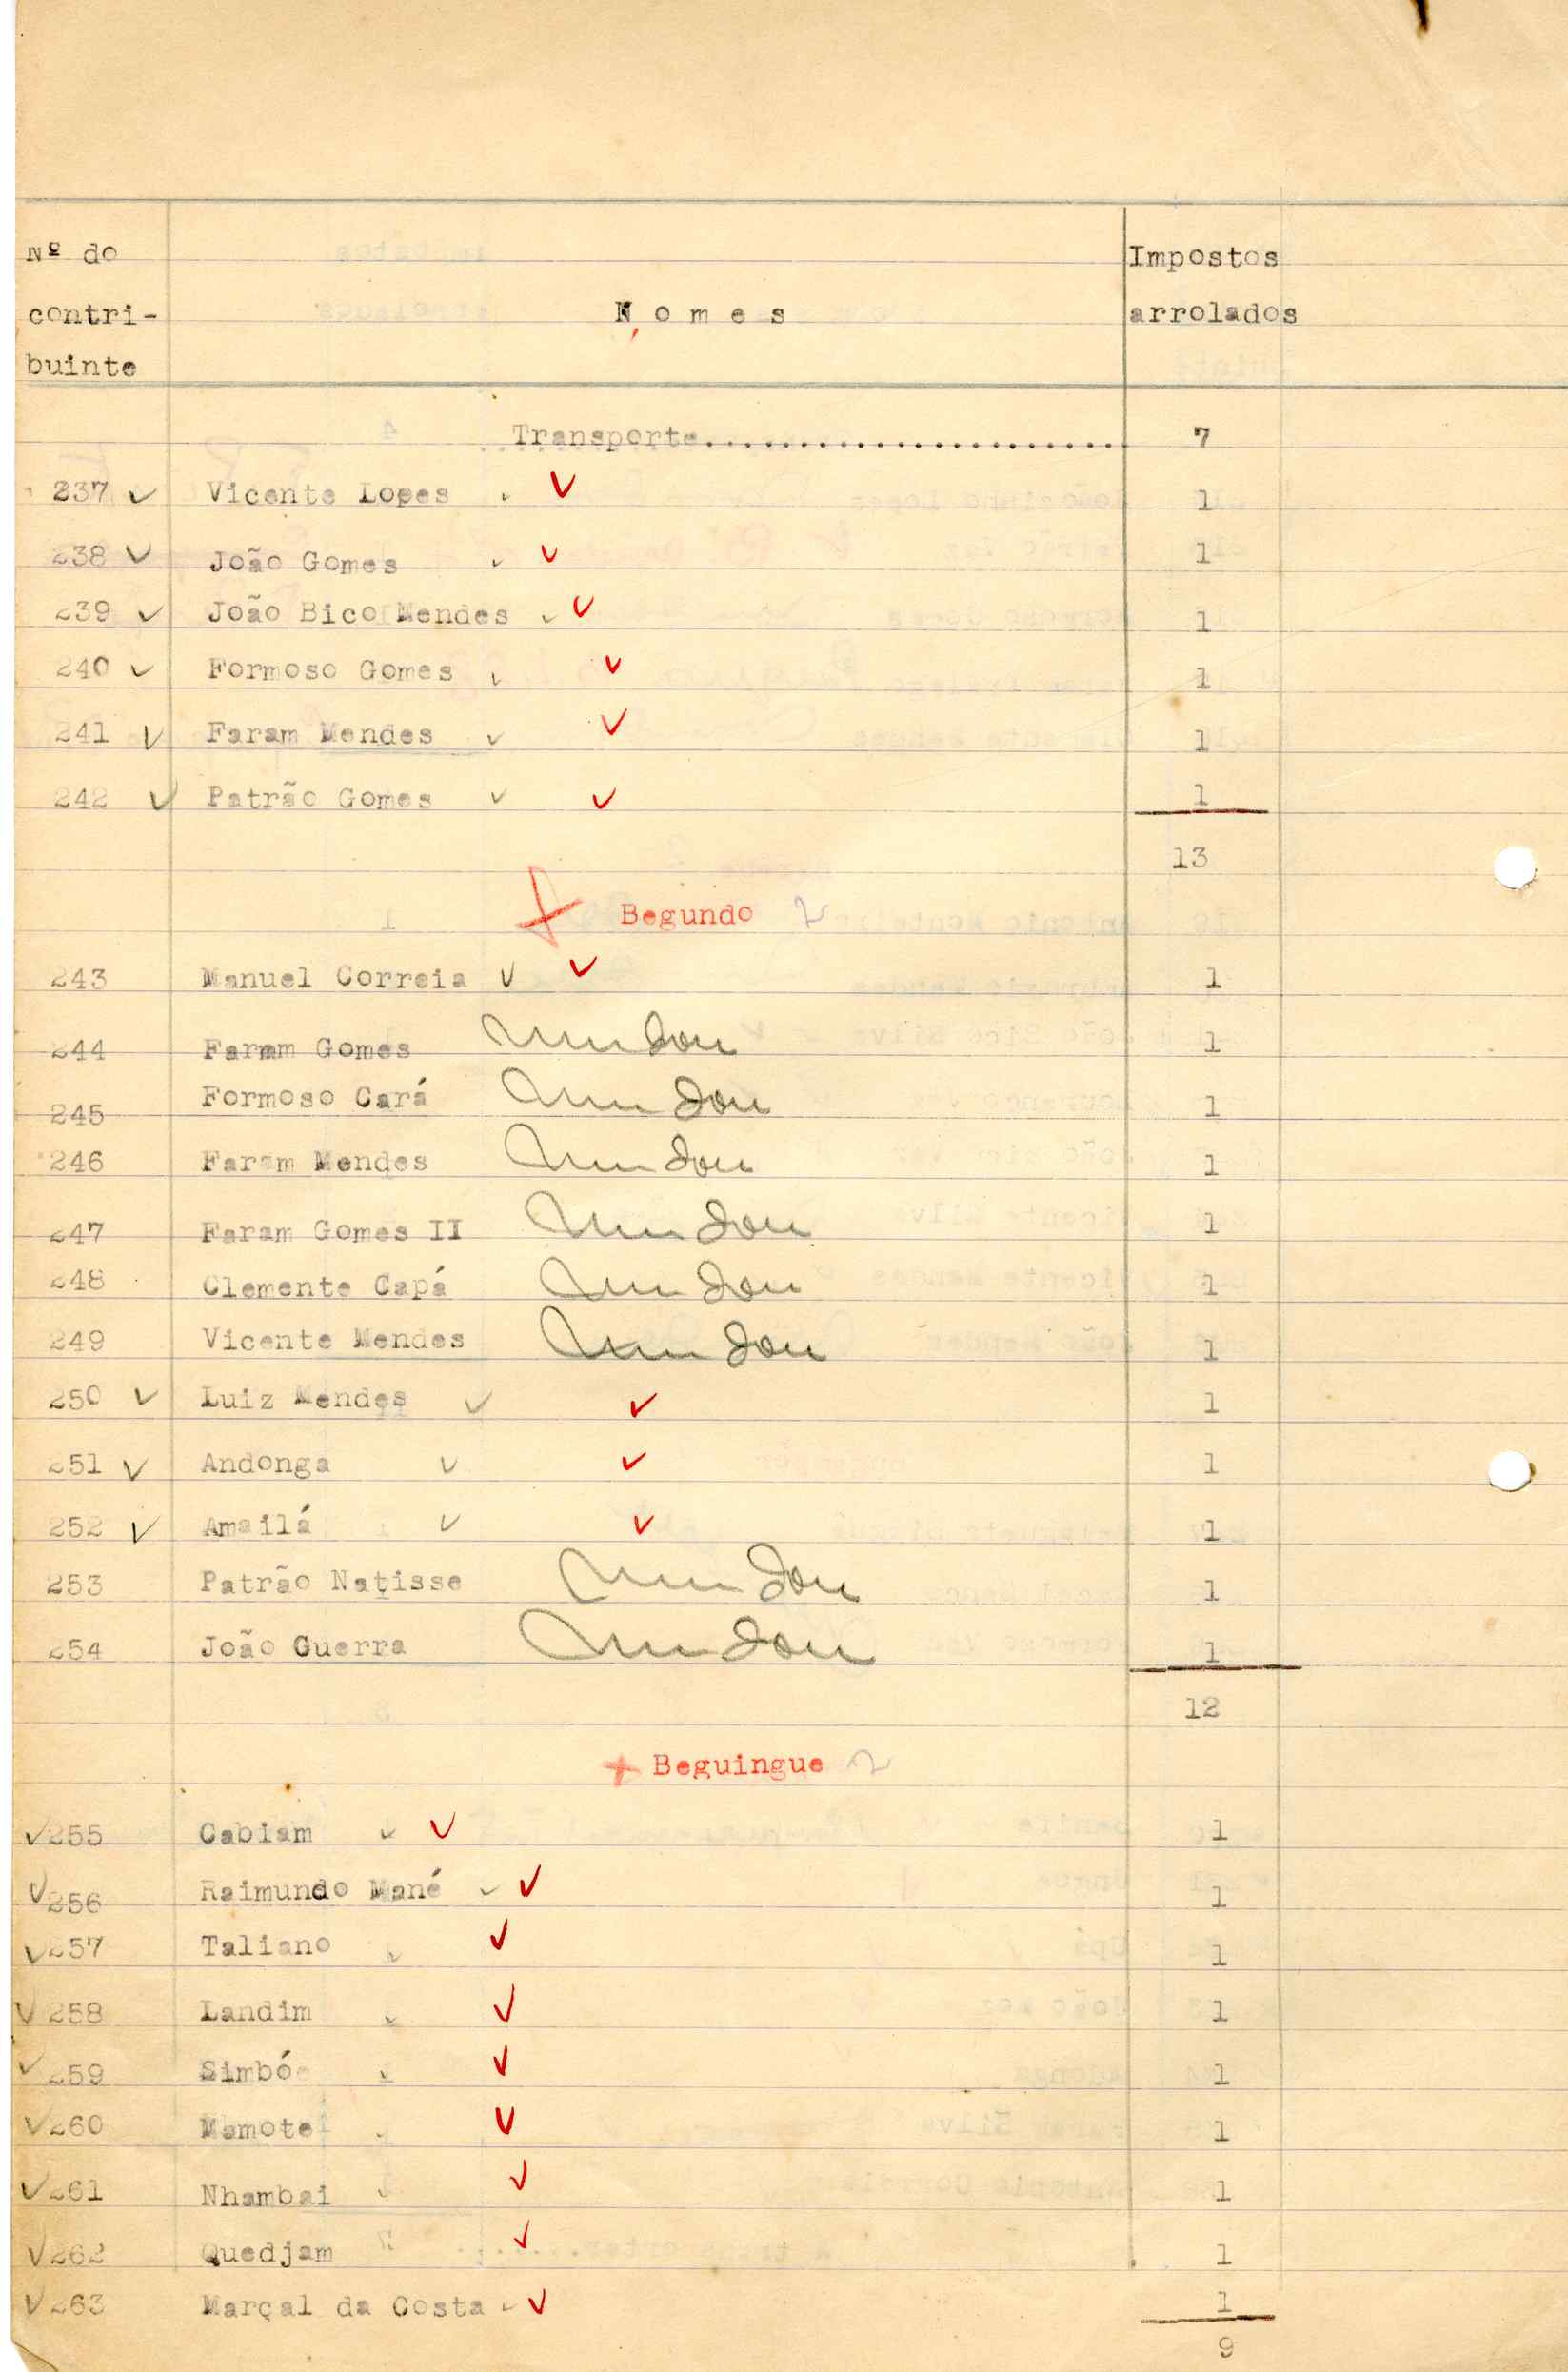 Nº do
contri-
buinte
Nomes
Impostos
arrolados
Transporte....................... 7
237 ✓ Vicente Lopes ✓ ✓ 1
238 ✓ João Gomes ✓ ✓ 1
239 ✓ João Bico Mendes ✓ ✓ 1
240 ✓ Formoso Gomes ✓ ✓ 1
241 ✓ Faram Mendes ✓ ✓ 1
242 ✓ Patrão Gomes ✓ ✓ 1
13
Begundo
243 Manuel Correia ✓ ✓ 1
244 Faram Gomes Mudou 1
245 Formoso Cará Mudou 1
246 Faram Mendes Mudou 1
247 Faram Gomes II Mudou 1
248 Clemente Capá Mudou 1
249 Vicente Mendes Mudou 1
250 ✓ Luiz Mendes ✓ ✓ 1
251 ✓ Andonga ✓ ✓ 1
252 ✓ Amailá ✓ ✓ 1
253 Patrão Natisse Mudou 1
254 João Guerra Mudou 1
12
+ Beguingue
✓ 255 Cabiam ✓ ✓ 1
✓ 256 Raimundo Mané ✓ ✓ 1
✓ 257 Taliano ✓ ✓ 1
✓ 258 Landim ✓ ✓ 1
✓ 259 Simbó ✓ ✓ 1
✓ 260 Mamote ✓ ✓ 1
✓ 261 Nhambai ✓ ✓ 1
✓ 262 Quedjam ✓ 1
✓ 263 Marçal da Costa ✓ ✓ 1
9